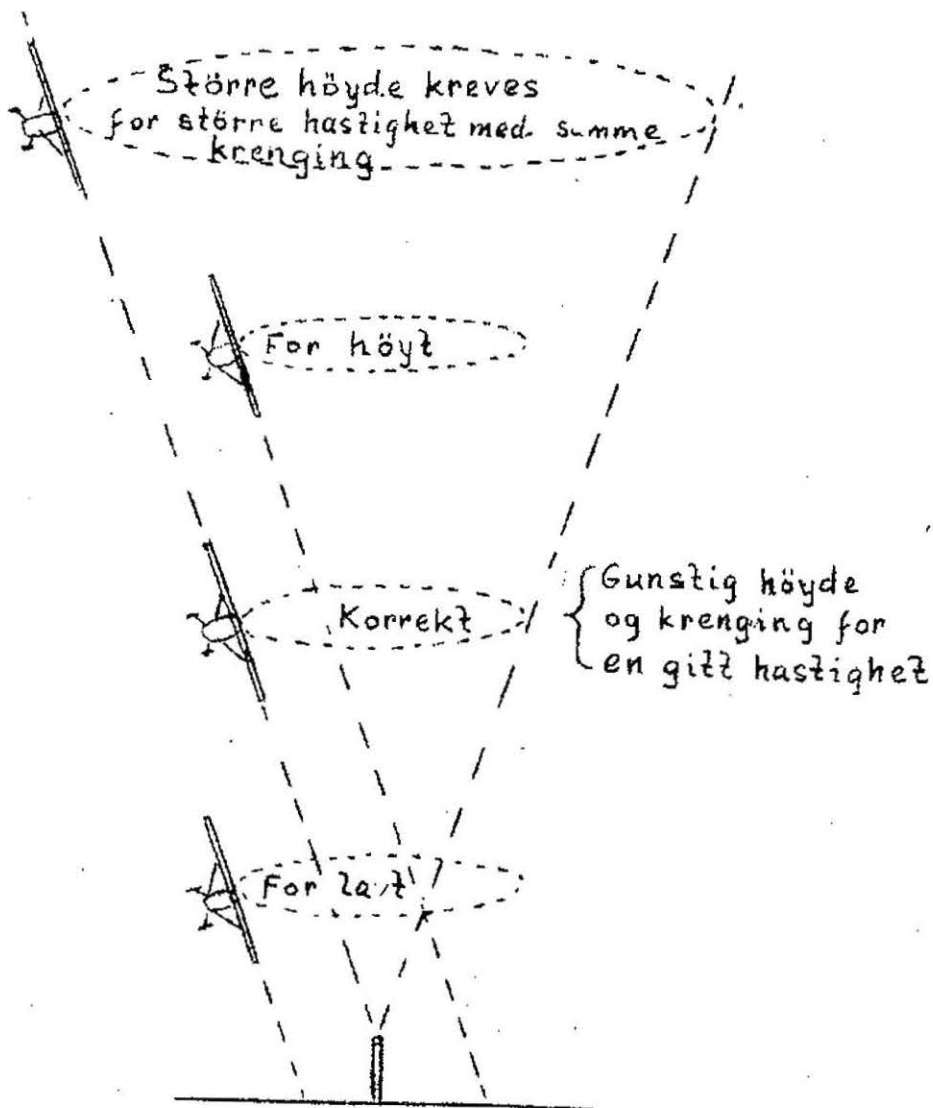 Större höyde kreves
for större hastighet med. summe
krenging
For höyt
Korrekt
Gunstig höyde
og krenging for
en gitt hastighet
For lavt